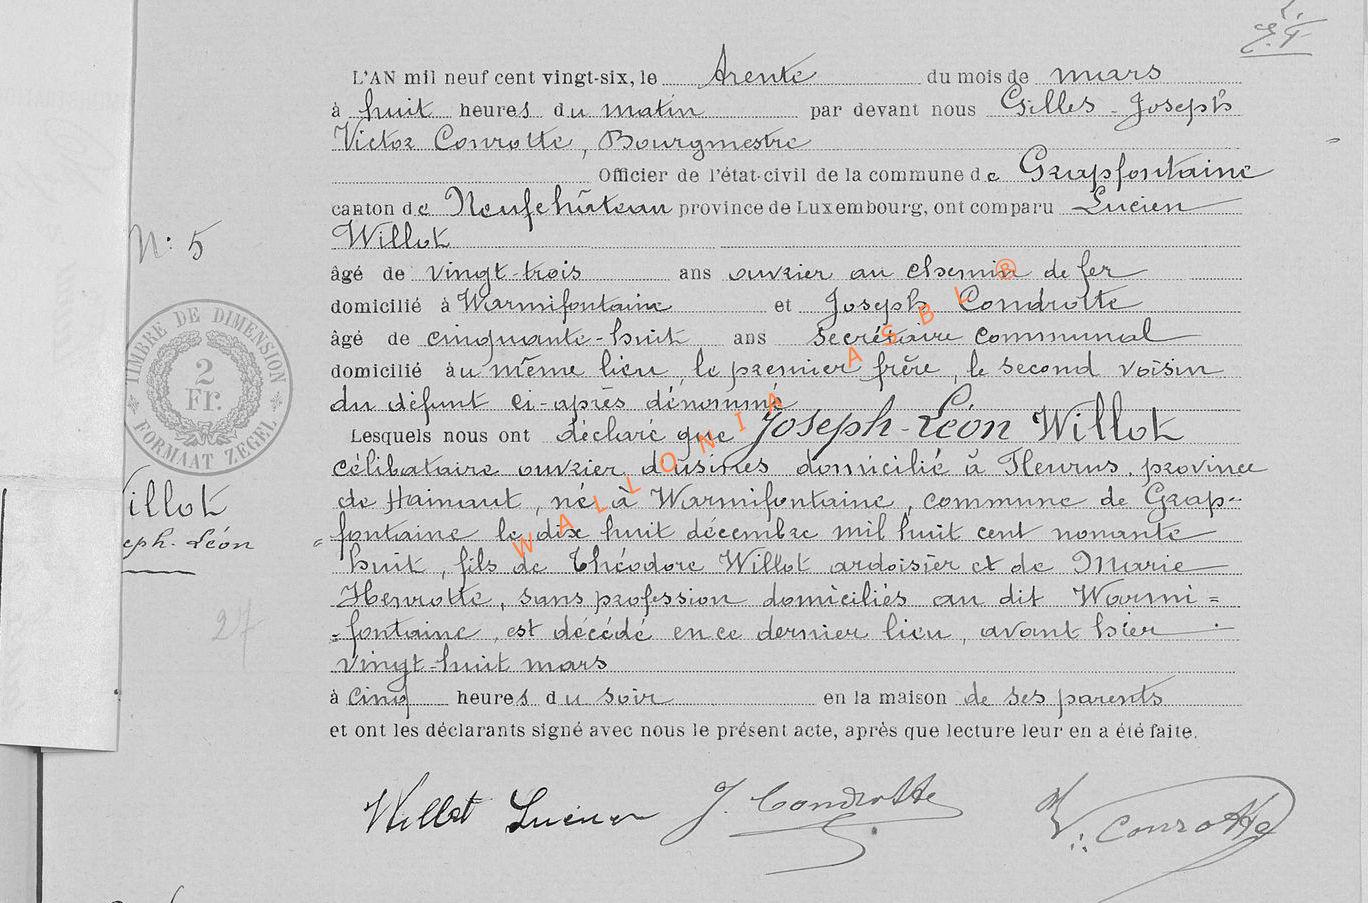 L'AN mil neuf cent vingt-six, le trente du mois de mars
à huit heures du matin par devant nous Gilles-Joseph
Victor Conrotte, Bourgmestre
Officier de l'état-civil de la commune de Grapfontaine
canton de Neufchâteau province de Luxembourg, ont comparu Lucien
Willot
N: 5
âgé de vingt-trois ans ouvrier au chemin de fer
domicilié à Warmifontaine et Joseph Condrotte
âgé de cinquante-huit ans secrétaire communal
domicilié au même lieu, le premier frère, le second voisin
du défunt ci-après dénommé
TIMBRE DE DIMENSION
2
Fr.
FORMAAT ZEGEL
Lesquels nous ont déclaré que Joseph-Léon Willot
célibataire ouvrier d'usines domicilié à Fleurus, province
de Hainaut, né à Warmifontaine, commune de Grap-
fontaine le dix huit décembre mil huit cent nonante
huit, fils de Théodore Willot ardoisier et de Marie
Henrotte, sans profession domiciliés au dit Warmi=
=fontaine, est décédé en ce dernier lieu, avant hier
vingt-huit mars
à cinq heures du soir en la maison de ses parents
et ont les déclarants signé avec nous le présent acte, après que lecture leur en a été faite.
illot
eph-Léon
27
Willot Lucien J. Condrotte V. Conrotte
WALLONIA ASBL ®